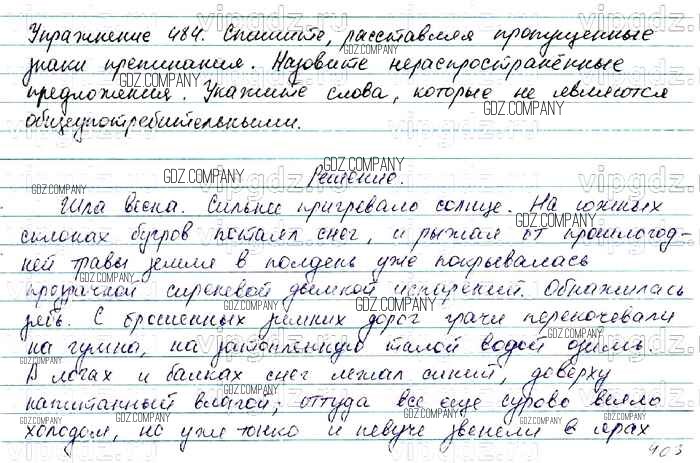 Упражнение 484. Спишите, расставляя пропущенные
знаки препинания. Назовите нераспространённые
предложения. Укажите слова, которые не являются
общеупотребительными.
Решение.
Шла весна. Сильнее пригревало солнце. На южных
склонах бугров потаял снег, и рыжая от прошлогод-
ней травы земля в полдень уже покрывалась
прозрачной сиреневой дымкой испарений. Обнажилась
зябь. С брошенных зимних дорог грачи перекочевали
на гумна, на затопленную талой водой озимь.
В логах и балках снег лежал синий, доверху
напитанный влагой; оттуда все еще сурово веяло
холодом, но уже тонко и певуче звенели в ярах
403
GDZ.COMPANY
vipgdz.ru